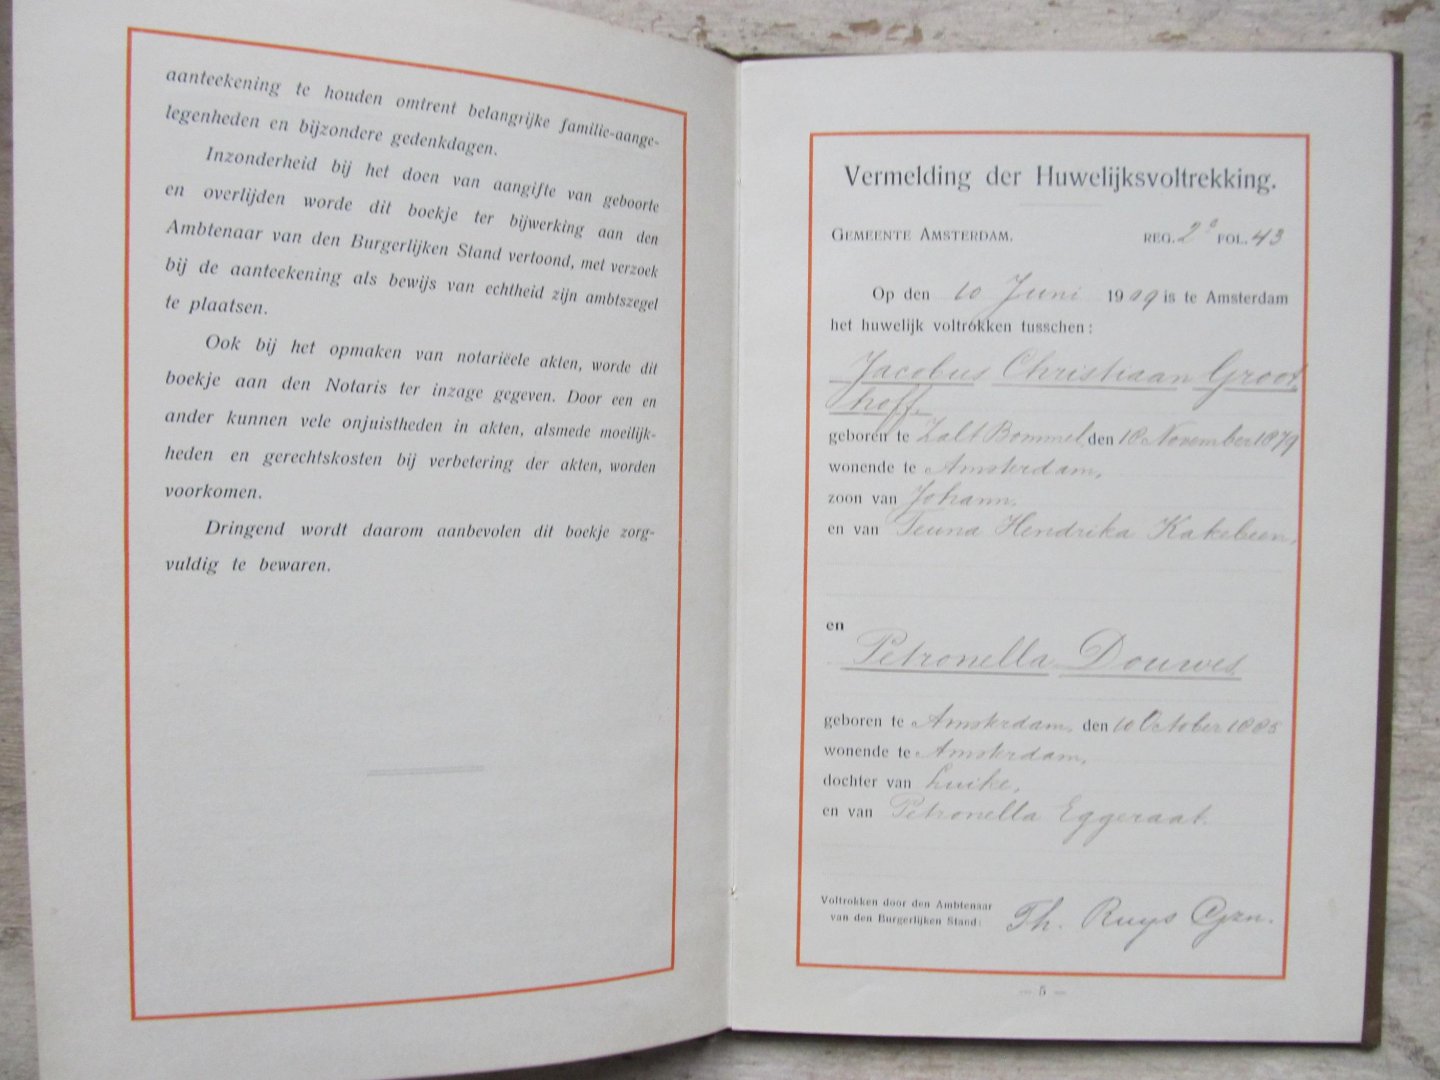 aanteekening te houden omtrent belangrijke familie-aange-
legenheden en bijzondere gedenkdagen.
Inzonderheid bij het doen van aangifte van geboorte
en overlijden worde dit boekje ter bijwerking aan den
Ambtenaar van den Burgerlijken Stand vertoond, met verzoek
bij de aanteekening als bewijs van echtheid zijn ambtszegel
te plaatsen.
Ook bij het opmaken van notariëele akten, worde dit
boekje aan den Notaris ter inzage gegeven. Door een en
ander kunnen vele onjuistheden in akten, alsmede moeilijk-
heden en gerechtskosten bij verbetering der akten, worden
voorkomen.
Dringend wordt daarom aanbevolen dit boekje zorg-
vuldig te bewaren.
Vermelding der Huwelijksvoltrekking.
GEMEENTE AMSTERDAM. REG. 2e FOL. 43
Op den 10 Juni 1909 is te Amsterdam
het huwelijk voltrokken tusschen:
Jacobus Christiaan Groot
hoff.
geboren te Zalt Bommel, den 18 November 1879
wonende te Amsterdam,
zoon van Johann.
en van Teuna Hendrika Kakebeen,
en
Petronella Douwes
geboren te Amsterdam, den 10 October 1885
wonende te Amsterdam,
dochter van Luike,
en van Petronella Eggeraat.
Voltrokken door den Ambtenaar
van den Burgerlijken Stand: Th. Ruys
— 5 —